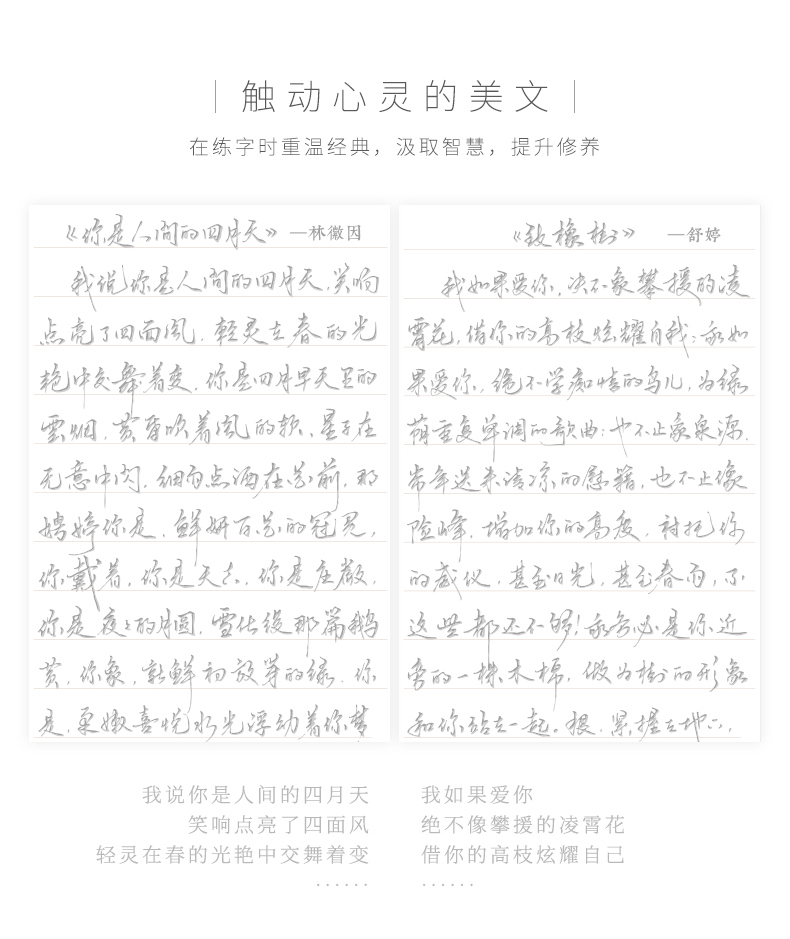 触动心灵的美文
在练字时重温经典，汲取智慧，提升修养
《你是人间的四月天》—林徽因
我说你是人间的四月天,笑响
点亮了四面风,轻灵在春的光
艳中交舞着变,你是四月早天里的
雲烟,黄昏吹着风的软,星子在
无意中闪,细雨点洒在花前,那
娉婷你是,鲜妍百花的冠冕,
你戴着,你是天真,你是庄严,
你是夜々的月圆,雪化後那篇鹅
黄,你象,新鲜初放芽的绿,你
是,柔嫩喜悦水光浮动着你梦
《致橡树》 —舒婷
我如果爱你,决不象攀援的凌
霄花,借你的高枝炫耀自我;我如
果爱你,绝不学痴情的鸟儿,为绿
荫重复单调的歌曲;也不止象泉源,
常年送来清凉的慰籍,也不止像
险峰,增加你的高度,衬托你
的威仪,甚至日光,甚至春雨,不
这些都还不够!我务必是你近
旁的一株木棉,做为树的形象
和你站在一起。根,紧握在地下,
我说你是人间的四月天
笑响点亮了四面风
轻灵在春的光艳中交舞着变
······
我如果爱你
绝不像攀援的凌霄花
借你的高枝炫耀自己
······